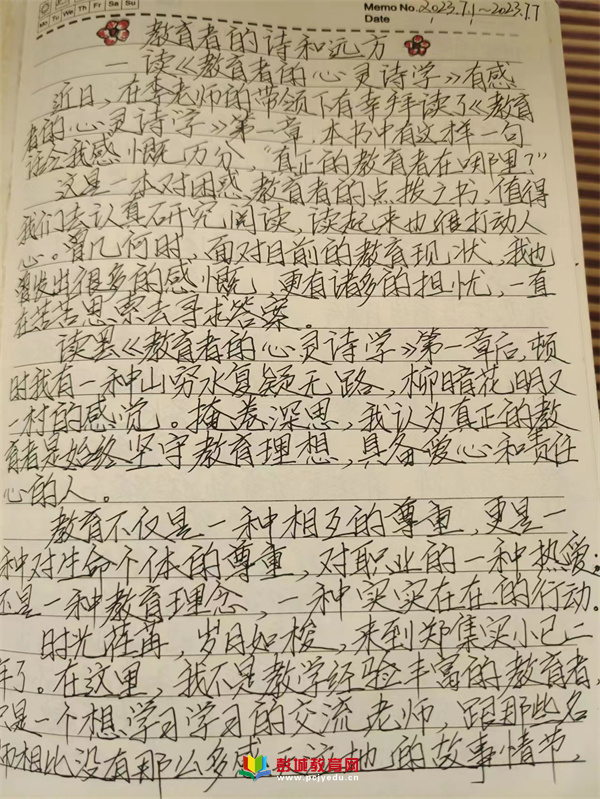 Mo Tu We Th Fr Sa Su
Memo No. 2023.7.1~2023.7.7
Date
教育者的诗和远方
—读《教育者的心灵诗学》有感
近日,在李老师的带领下有幸拜读了《教育
者的心灵诗学》第一章,本书中有这样一句
话令我感慨万分,“真正的教育者在哪里?”
这是一本对困惑教育者的点拨之书,值得
我们去认真研究阅读,读起来也很打动人
心。曾几何时,面对目前的教育现状,我也
发出很多的感慨,更有诸多的担忧,一直
在苦苦思索去寻求答案。
读罢《教育者的心灵诗学》第一章后,顿
时我有一种山穷水复疑无路,柳暗花明又
一村的感觉。掩卷深思,我认为真正的教
育者是始终坚守教育理想,具备爱心和责任
心的人。
教育不仅是一种相互的尊重,更是一
种对生命个体的尊重,对职业的一种热爱;
还是一种教育理念,一种实实在在的行动。
时光荏苒,岁月如梭,来到郑集实小已二
年了。在这里,我不是教学经验丰富的教育者,
是一个想学习学习的交流老师,跟那些名
相比没有那么多感天动地的故事情节,
彭城教育网
www.pcjyedu.cn